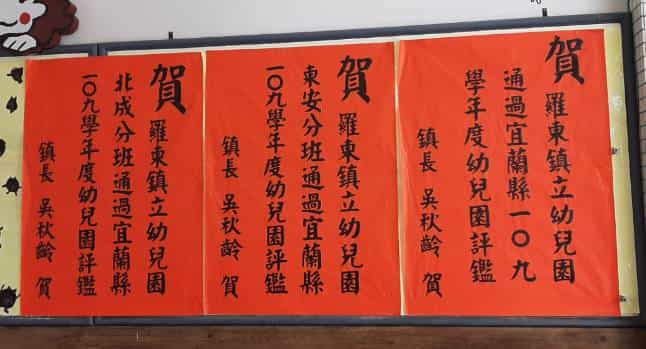 賀 羅東鎮立幼兒園
通過宜蘭縣一〇九
學年度幼兒園評鑑
鎮長 吳秋齡 賀
賀 羅東鎮立幼兒園
東安分班通過宜蘭縣
一〇九學年度幼兒園評鑑
鎮長 吳秋齡 賀
賀 羅東鎮立幼兒園
北成分班通過宜蘭縣
一〇九學年度幼兒園評鑑
鎮長 吳秋齡 賀